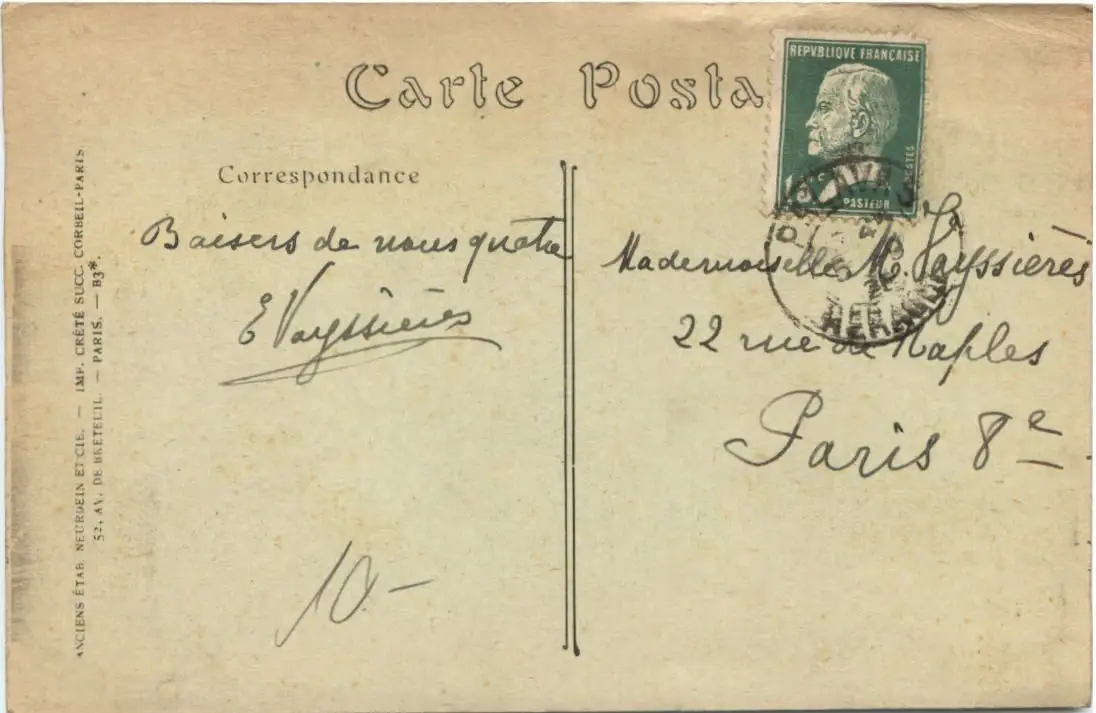 Carte Posta
REPVBLIQVE FRANÇAISE
POSTES
PASTEUR
Correspondance
Baisers de nous quatre
E Vayssières
10.-
HERAULT
Mademoiselle M. Vayssières
22 rue de Naples
Paris 8e
ANCIENS ÉTAB. NEURDEIN ET CIE. — IMP. CRÉTÉ SUCC. CORBEIL-PARIS
52, AV. DE BRETEUIL. — PARIS. — B3*.